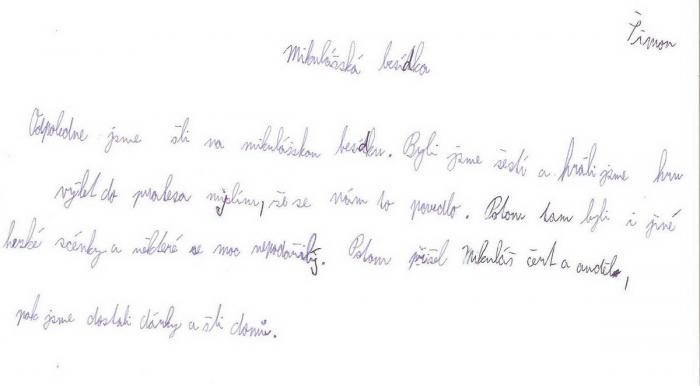 Šimon
Mikulášská besídka
Odpoledne jsme šli na mikulášskou besídku. Byli jsme šestí a hráli jsme hru
výlet do pralesa myslím, že se nám to povedlo. Potom tam byli i jiné
herké scénky a některé se moc nepodařily. Potom přišel Mikuláš čert a anděl,
pak jsme dostali dárky a šli domů.